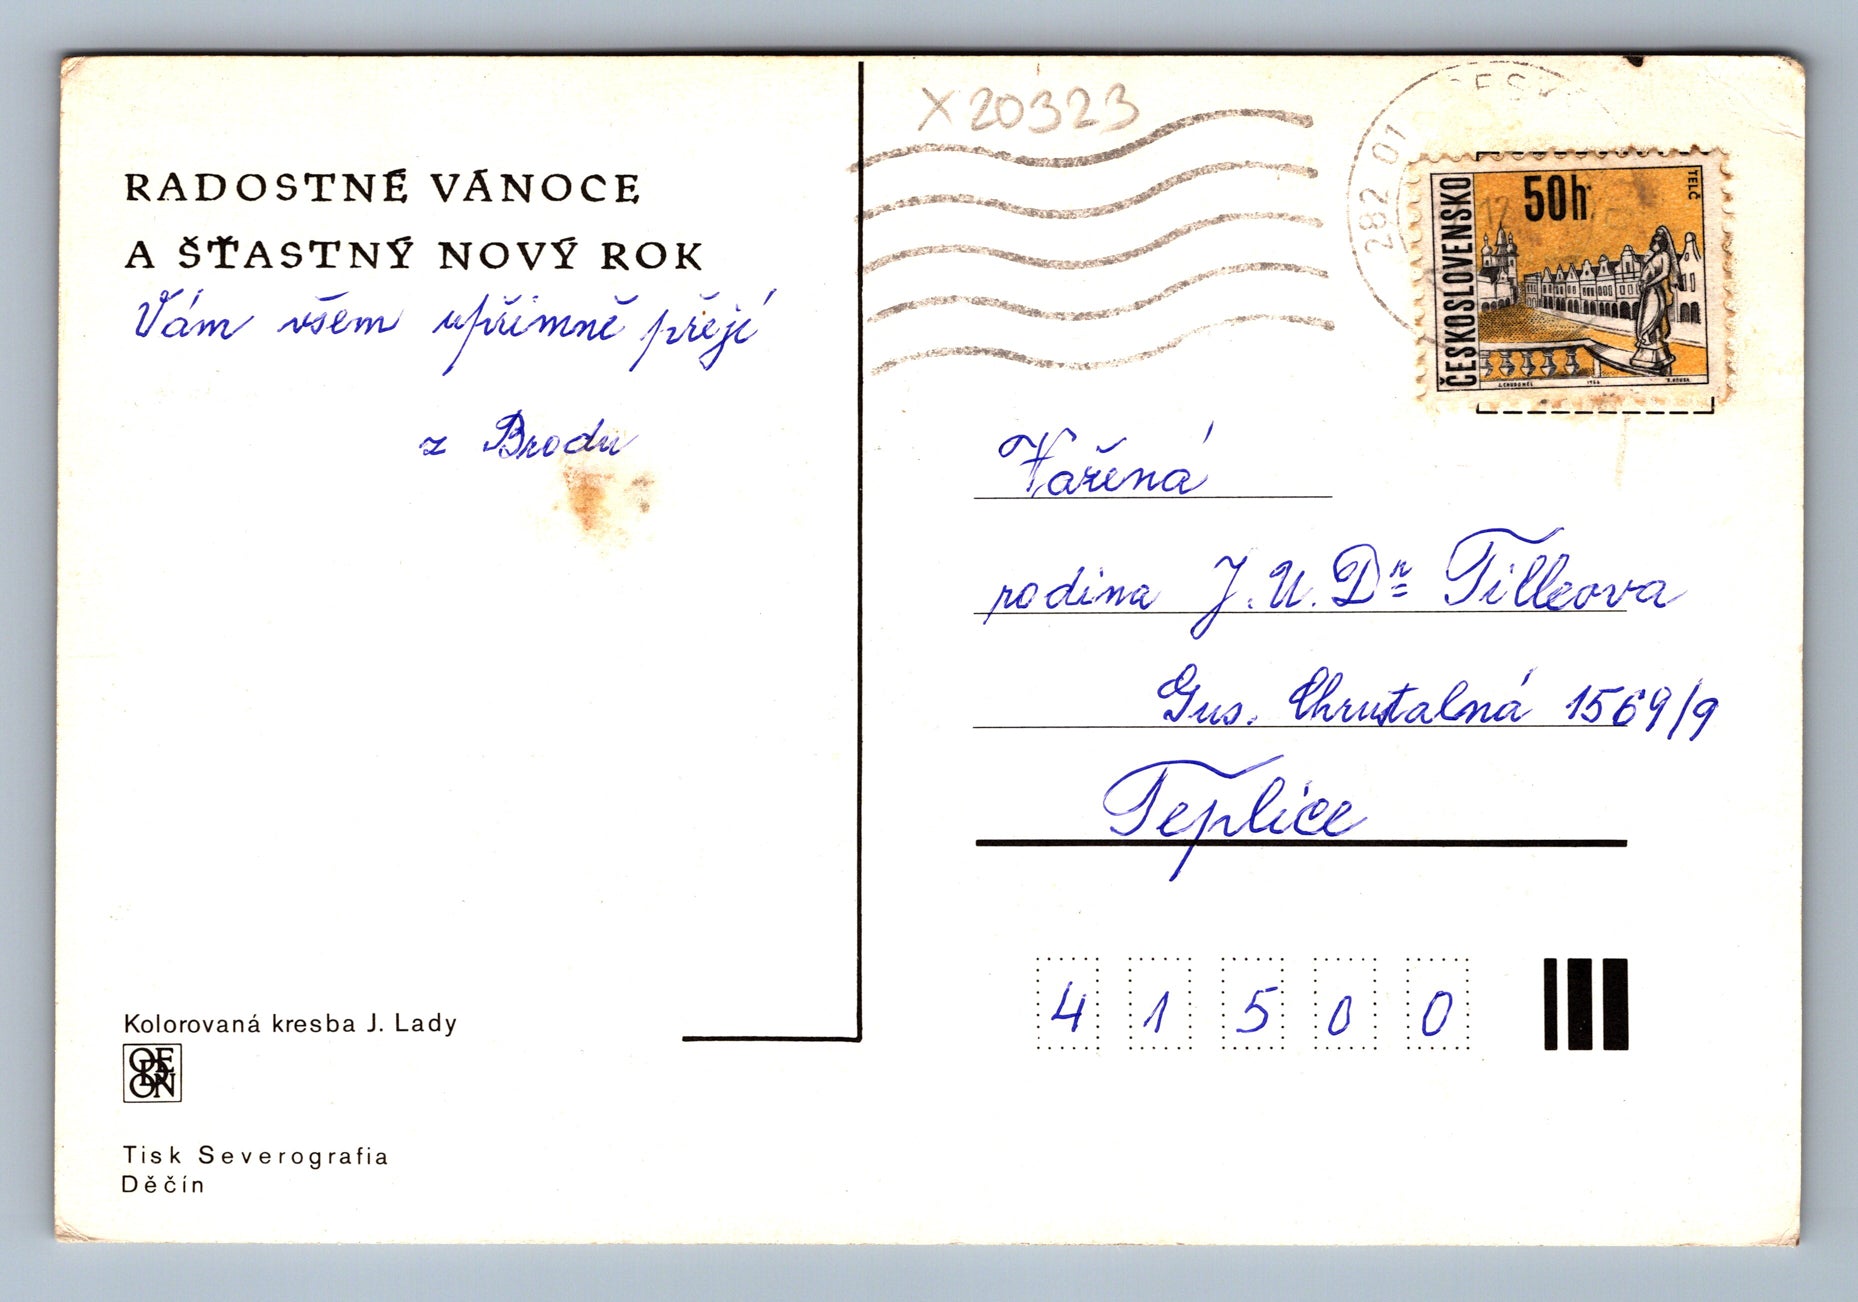 RADOSTNÉ VÁNOCE
A ŠŤASTNÝ NOVÝ ROK
Vám všem upřímně přejí
z Brodu
Kolorovaná kresba J. Lady
ODEON
Tisk Severografia
Děčín
X20323
282 01
ČESKOSLOVENSKO
50h
TELČ
1966
Vážená
rodina J.U.Dr Tilleova
Gus. 1569/9
Teplice
41500